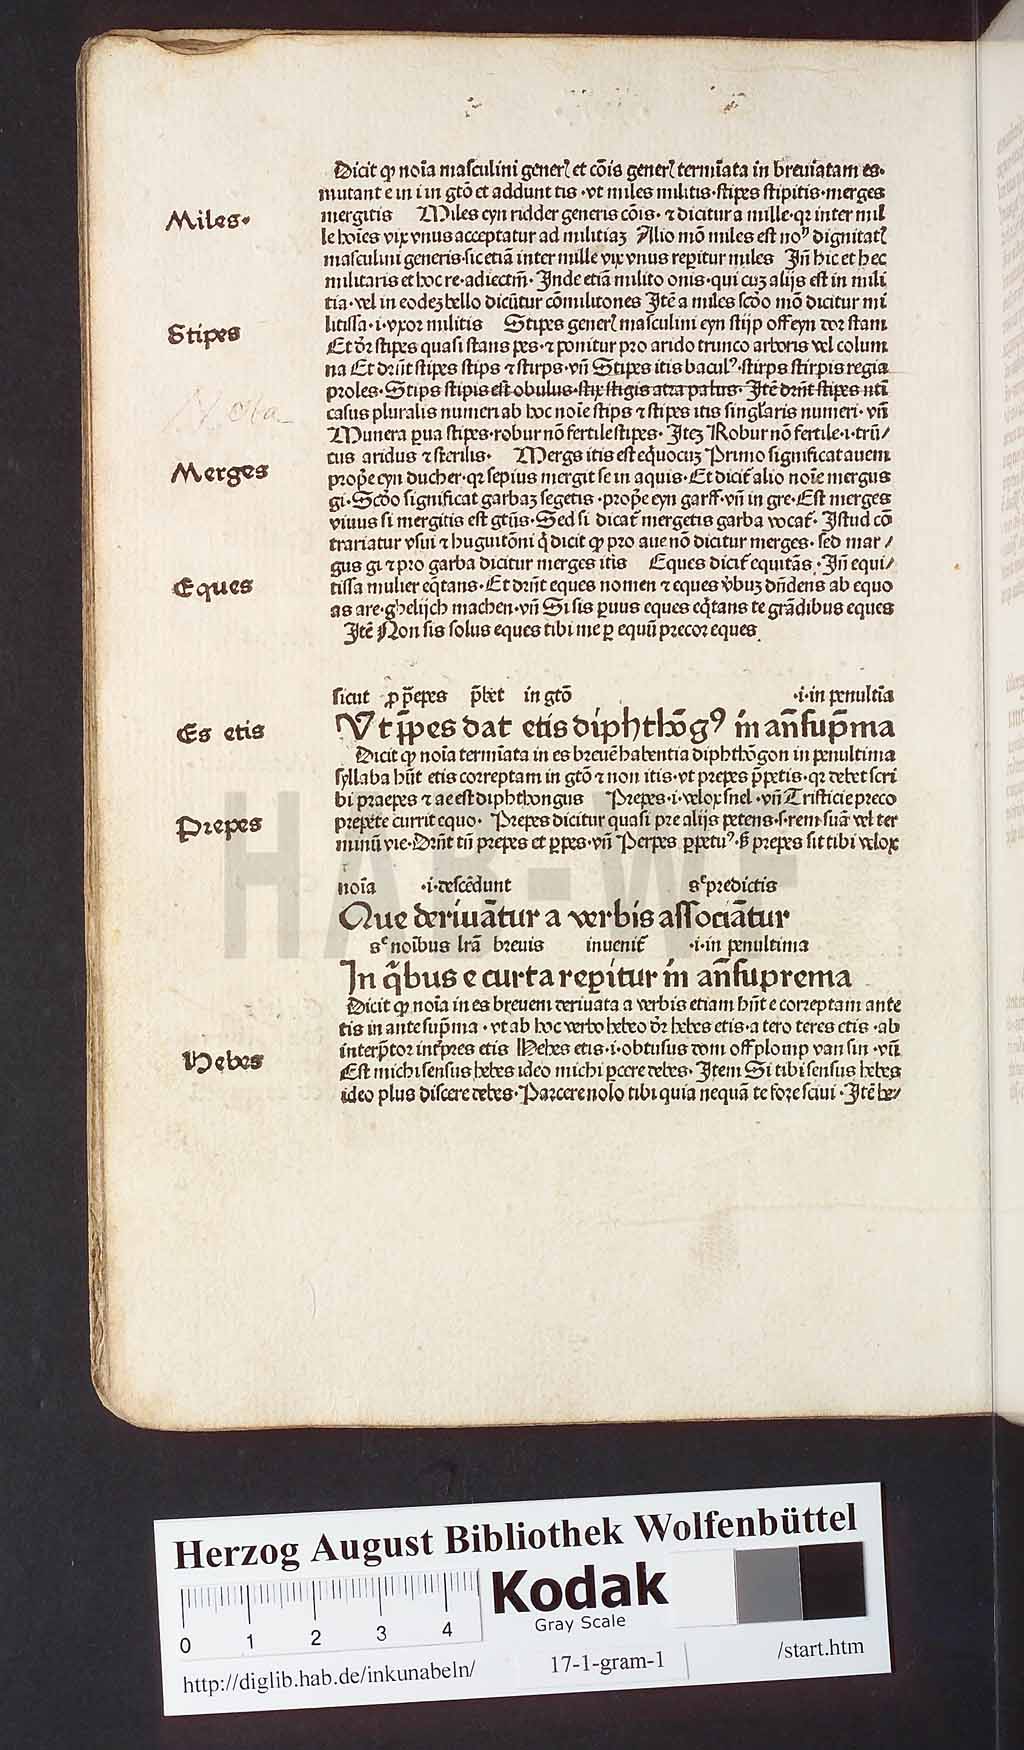 Dicit ꝙ noīa masculini generꝭ et cōis generꝭ termīata in breuīatam es·
mutant e in i in gtō et addunt tis · vt miles militis · stipes stipitis · merges
Miles·
mergitis Miles eyn ridder generis cōis · ⁊ dicitur a mille · qꝛ inter mil
le hoīes vix vnus acceptatur ad militiaꝫ Alio mō miles est noꝰ dignitatꝭ
masculini generis · sic etiā inter mille vix vnus reꝑitur miles Jn̄ hic et hec
militaris et hoc re · adiectiꝫ · Jnde etiā milito onis · qui cuꝫ alijs est in mili
tia · vel in eodeꝫ bello dicūtur cōmilitones Jtē a miles scd̄o mō dicitur mi
Stipes
litissa · i · vxor militis Stipes generꝭ masculini eyn stijp off eyn dor stam
Et dr̄ stipes quasi stans pes · ⁊ ponitur pro arido trunco arboris vel colum
na Et drn̄t stipes stips ⁊ stirps · vn̄ Stipes itis baculꝰ · stirps stirpis regia
proles · Stips stipis est obulus · stix stigis atra palus · Jtē drn̄t stipes nti
Nota
casus pluralis numeri ab hoc noīe stips ⁊ stipes itis singl̄aris numeri · vn̄
Munera ꝑua stipes · robur nō fertile stipes · Jteꝫ Robur nō fertile · i · trū/
cus aridus ⁊ sterilis · Mergs itis est eq̄uocuꝫ Primo significat auem
Merges
prop̄e eyn ducher · qꝛ sepius mergit se in aquis · Et dicit̄ alio noīe mergus
gi · Scd̄o significat garbaꝫ segetis · prop̄e eyn garff · vn̄ in gre · Est merges
viuus si mergitis est gtūs · Sed si dicat̄ mergetis garba vocat̄ · Jstud cō
trariatur vsui ⁊ huguitōni q̄ dicit ꝙ pro aue nō dicitur merges · sed mar/
gus gi ⁊ pro garba dicitur merges itis Eques dicit̄ equitās · Jn̄ equi/
Eques
tissa mulier eq̄tans · Et drn̄t eques nomen ⁊ eques v̄buꝫ dn̄dens ab equo
as are · ghelijch machen · vn̄ Si sis ꝑuus eques eq̄tans te grādibus eques
Jtē Non sis solus eques tibi me ꝑ equū precor eques
sicut ꝓ p̄epes p̄bet in gtō · i · in penultīa
Es etis
Vt p̄pes dat etis diphthōgꝰ in an̄sup̄ma
Dicit ꝙ noīa termīata in es breuē habentia diphthōgon in penultima
syllaba hn̄t etis correptam in gtō ⁊ non itis · vt prepes p̄petis · qꝛ debet scri
bi praepes ⁊ ae est diphthongus Prepes · i · velox snel · vn̄ Tristicie preco
Prepes
prepete currit equo · Prepes dicitur quasi pre alijs petens · s · rem suā vel ter
minū vie · Drn̄t tn̄ prepes et ꝑpes · vn̄ Perpes ꝑpetuꝰ · ꝫ prepes sit tibi velox
noīa · i · descēdunt sᶜ predictis
Que deriuātur a verbis associātur
sᶜ noībus lrā breuis inuenit̄ · i · in penultima
Jn q̄bus e curta reꝑitur in an̄suprema
Dicit ꝙ noīa in es breuem deriuata a verbis etiam hn̄t e correptam ante
tis in ante sup̄ma · vt ab hoc verbo hebeo dr̄ hebes etis · a tero teres etis · ab
interp̄tor int̄pres etis Hebes etis · i · obtusus dom off plomp van sin · vn̄
Hebes
Est michi sensus hebes ideo michi ꝑcere debes · Jtem Si tibi sensus hebes
ideo plus discere debes · Parcere nolo tibi quia nequā te fore sciui · Jtē he/
HAB-WF
Herzog August Bibliothek Wolfenbüttel
Kodak
Gray Scale
0 1 2 3 4
http://diglib.hab.de/inkunabeln/ 17-1-gram-1 /start.htm